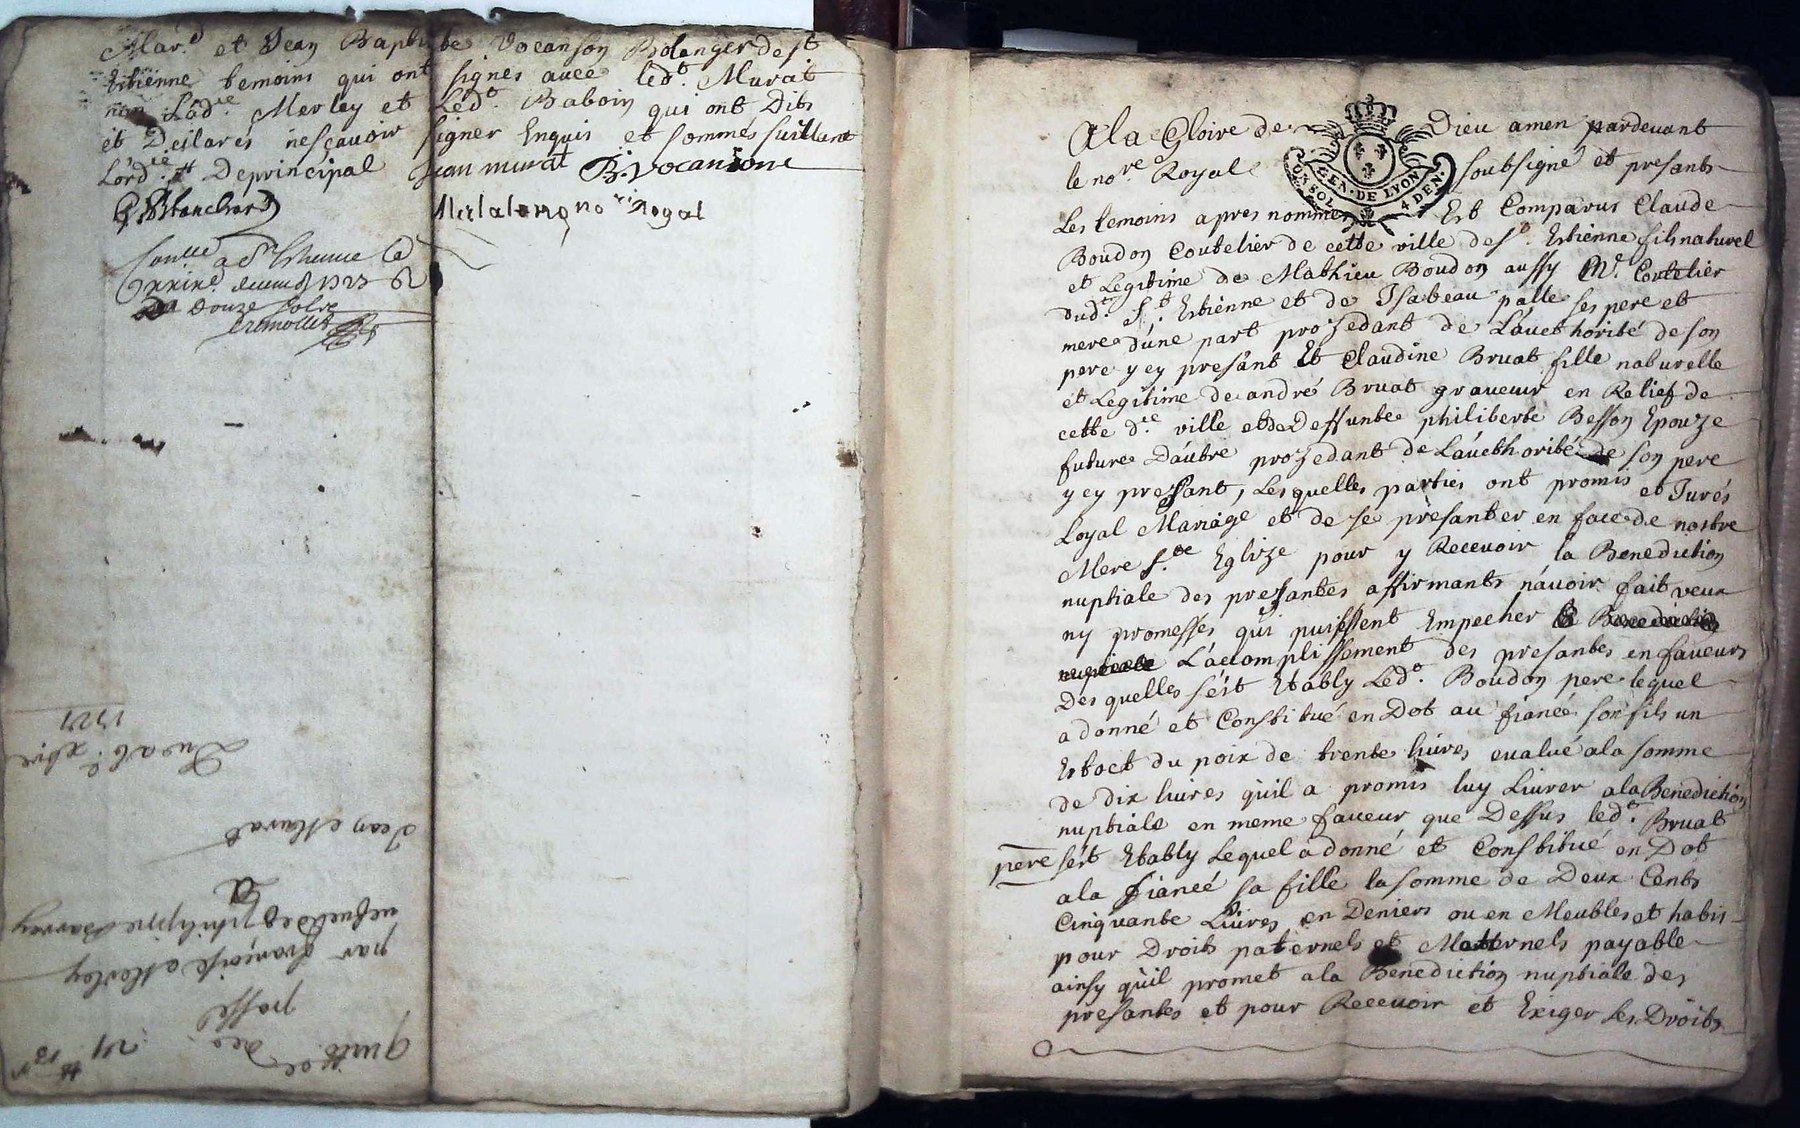 Mar.d et Jean Baptiste Vocanson Bolanger de st
Estienne temoins qui ont signes avec led.t Murat
non Lad.te Merley et Led.t Baboin qui ont Dits
et Declarés nesçavoir signer Enquis et sommés suivant
Lord.ce Deprincipal Jean murat B. Vocansonne
G Blanchard
no.re Royal
Con.llé a St Estienne Le
1723
douze sols
quitt.ce des
passé
par françoise Merley
veufve de philippe
a
Jean Murat
Du 26.e xbre
1721
A la Gloire de Dieu amen pardevant
le no.re Royal soubsigné et presants
GEN. DE LYON
UN SOL 4 DEN.
Les temoins apres nommes Est Comparus Claude
Boudon Coutelier de cette ville de St. Estienne fils naturel
et Legitime de Mathieu Boudon aussy M.e Coutelier
dud.t St. Estienne et de Isabeau palle ses pere et
mere dúne part prozedant de Láuethorité de son
pere y ey presant Et Claudine Bruat fille naturelle
et Legitime de andré Bruat graveur en Relief de
cette d.te ville et de Deffunte philiberte Besson Epouze
future Dáutre prozedant de Láuethorité de son pere
y ey presant, Lesquelles parties ont promis et Jurés
Loyal Mariage et de se presanter en face de nostre
Mere S.te Eglize pour y Recevoir la Benediction
nuptiale des presantes affirmants návoir fait veux
ny promesses qui puissent Empecher la Benediction
nuptiale Láccomplissement des presantes en faveurs
Desquelles sést Etably Led.t Boudon pere lequel
a donné et Constitué en Dot au fiancé son fils un
Estoct du poix de trente livres evalué a la somme
de dix livres quil a promis luy Livrer a la Benediction
nuptiale en meme faveur que Dessus led.t Bruat
pere sést Etably Lequel a donné et Constitué en Dot
a la fiancé sa fille la somme de Deux Cents
Cinquante Livres en Deniers ou en Meubles et habis
pour Droits paternels et Matternels payable
ainsy quil promet a la Benediction nuptiale des
presantes et pour Recevoir et Exiger les Droits